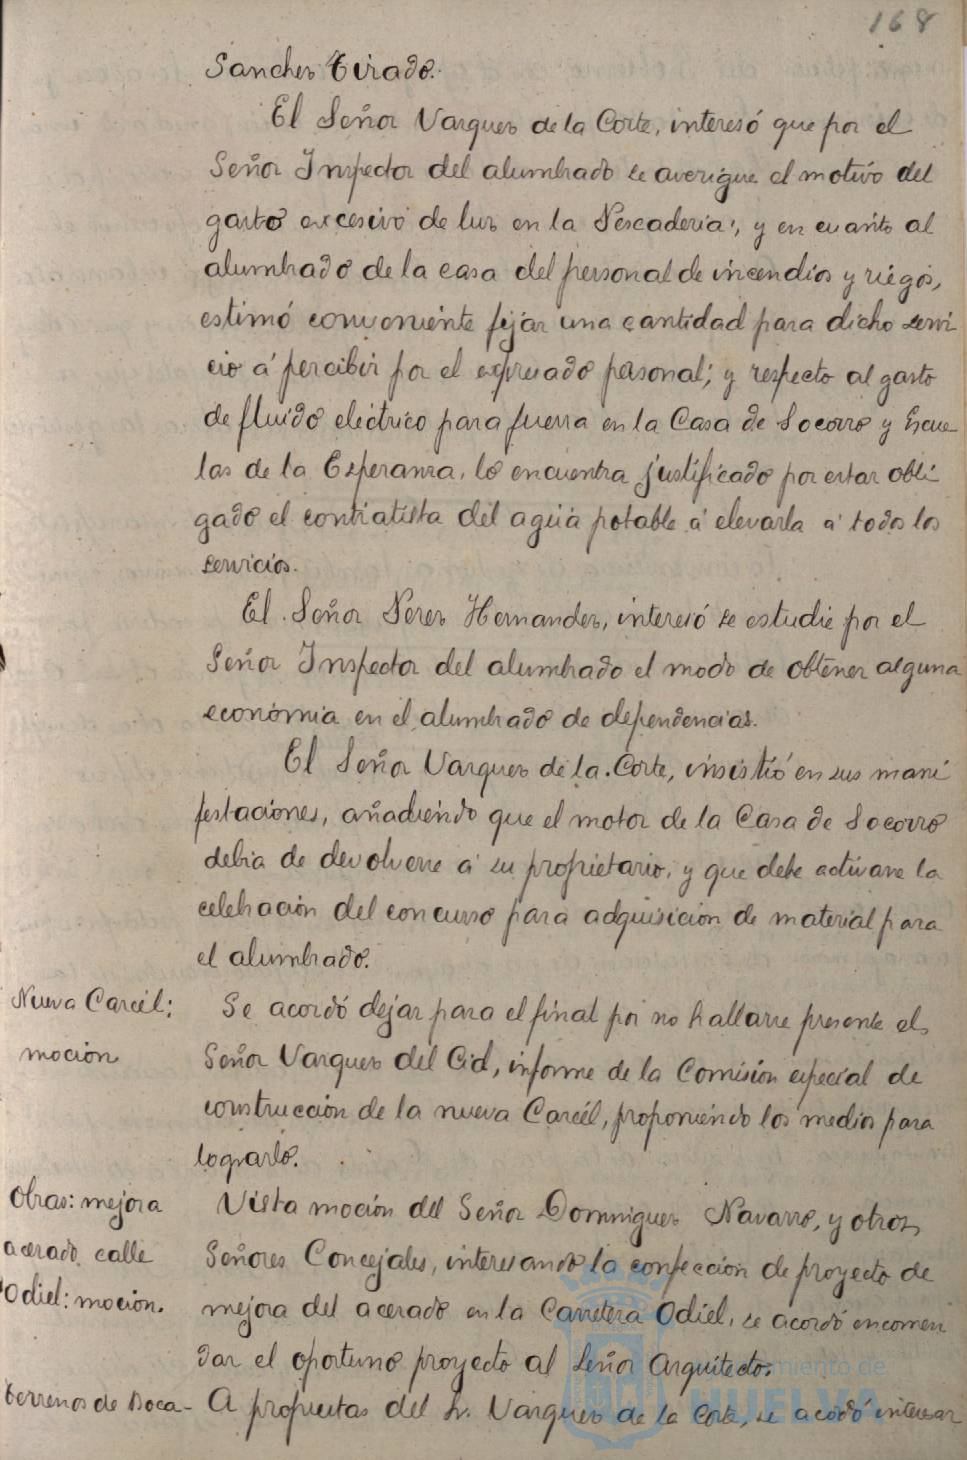 168
Sanchez Tirado.
El Señor Vazquez de la Corte, interesó que por el
Señor Inspector del alumbrado se averigüe el motivo del
gasto excesivo de luz en la Pescaderia; y en cuanto al
alumbrado de la casa del personal de incendios y riegos,
estimó conveniente fijar una cantidad para dicho servi
cio á percibir por el expresado personal; y respecto al gasto
de fluido eléctrico para fuerza en la Casa de Socorro y Escue
las de la Esperanza, lo encuentra justificado por estar obli
gado el contratista del agua potable á elevarla á todos los
servicios.
El Señor Perez Hernandez, interesó se estudie por el
Señor Inspector del alumbrado el modo de obtener alguna
economia en el alumbrado de dependencias.
El Señor Vazquez de la Corte, insistió en sus mani
festaciones, añadiendo que el motor de la Casa de Socorro
debia de devolverse á su propietario, y que debe activarse la
celebración del concurso para adquisición de material para
el alumbrado.
Nueva Carcel:
moción
Se acordó dejar para el final por no hallarse presente el
Señor Vazquez del Cid, informe de la Comisión especial de
construcción de la nueva Carcel, proponiendo los medios para
lograrlo.
Obras: mejora
acerado calle
Odiel: moción.
Vista moción del Señor Dominguez Navarro, y otros
Señores Concejales, interesando la confección de proyecto de
mejora del acerado en la Carretera Odiel, se acordó encomen
dar el oportuno proyecto al Señor Arquitecto.
Terrenos de Doca-
A propuestas del Sr. Vazquez de la Corte, se acordó interesar
Ayuntamiento de
HUELVA